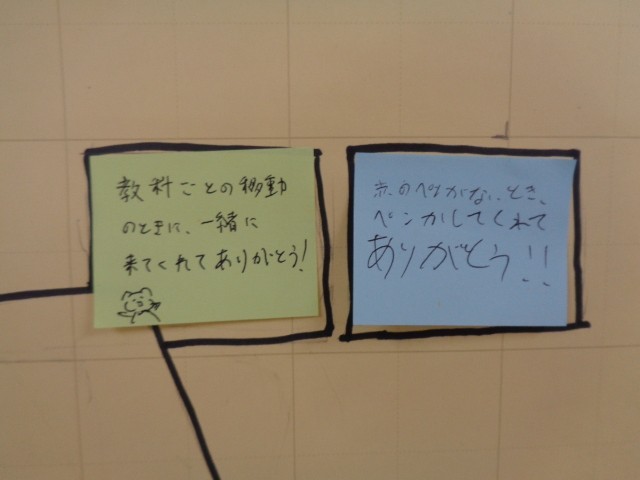 教科ごとの移動
のときに、一緒に
来てくれてありがとう!
赤のペンがないとき、
ペンかしてくれて
ありがとう!!